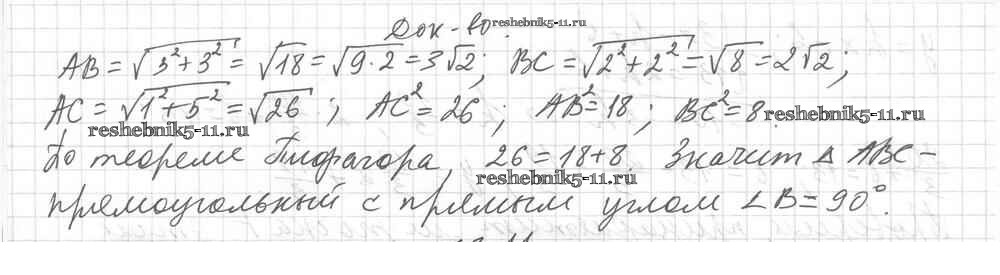 Док-во: reshebnik5-11.ru
AB = √(3² + 3²) = √18 = √(9·2) = 3√2; BC = √(2² + 2²) = √8 = 2√2;
AC = √(1² + 5²) = √26; AC² = 26; AB² = 18; BC² = 8.
reshebnik5-11.ru reshebnik5-11.ru
По теореме Пифагора, 26 = 18 + 8. Значит △ ABC –
reshebnik5-11.ru
прямоугольный с прямым углом ∠B = 90°.